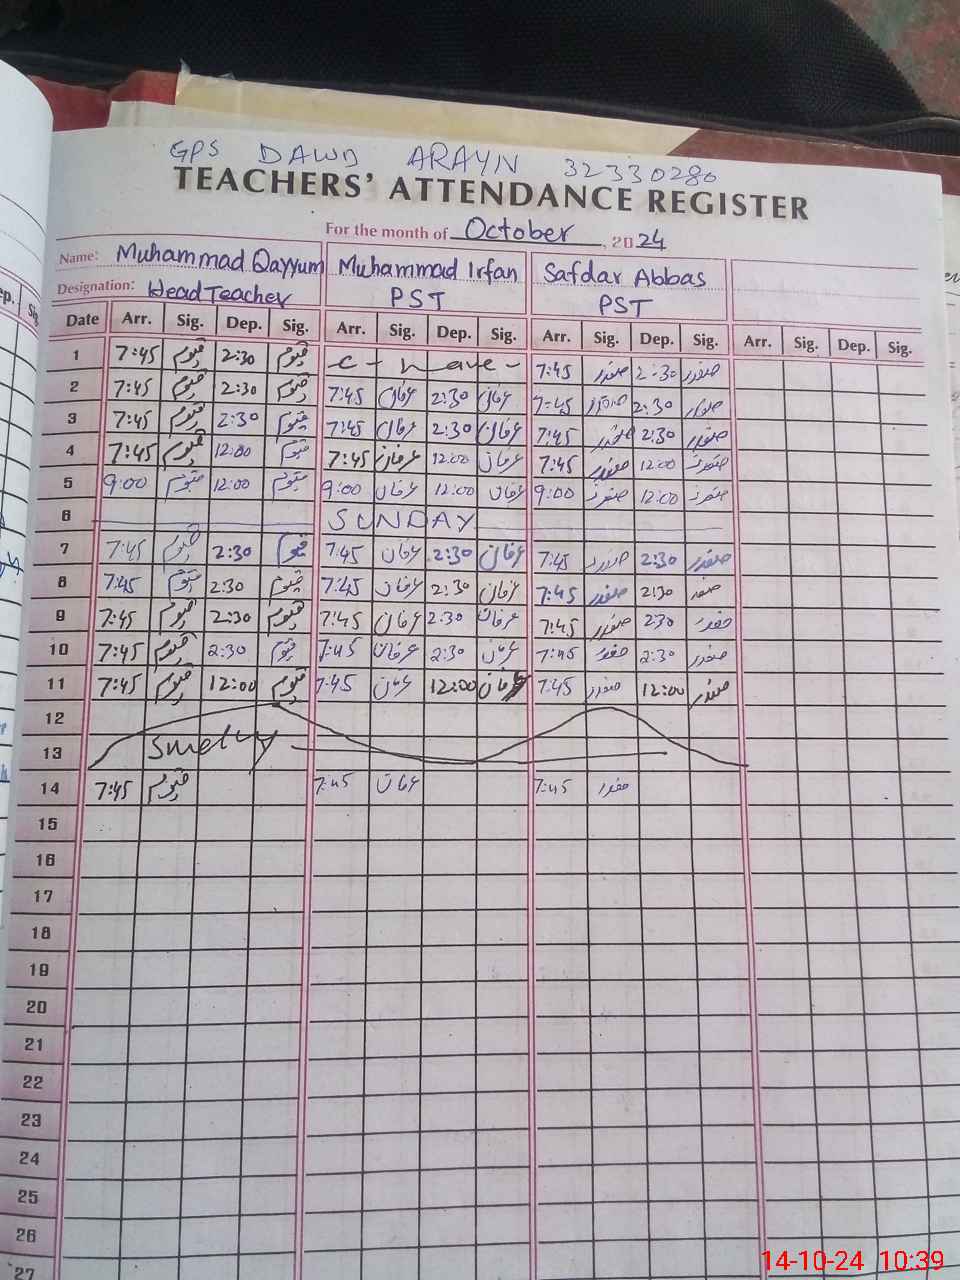 GPS DAWD ARAYN 32330280
TEACHERS' ATTENDANCE REGISTER
For the month of October, 2024
Name: Muhammad Qayyum Muhammad Irfan Safdar Abbas
Designation: Head Teacher PST PST
Date Arr. Sig. Dep. Sig. Arr. Sig. Dep. Sig. Arr. Sig. Dep. Sig. Arr. Sig. Dep. Sig.
1 7:45 قیوم 2:30 قیوم C - leave - 7:45 صفدر 2:30 صفدر
2 7:45 قیوم 2:30 قیوم 7:45 عرفان 2:30 عرفان 7:45 صفدر 2:30 صفدر
3 7:45 قیوم 2:30 قیوم 7:45 عرفان 2:30 عرفان 7:45 صفدر 2:30 صفدر
4 7:45 قیوم 12:00 قیوم 7:45 عرفان 12:00 عرفان 7:45 صفدر 12:00 صفدر
5 9:00 قیوم 12:00 قیوم 9:00 عرفان 12:00 عرفان 9:00 صفدر 12:00 صفدر
6 SUNDAY
7 7:45 قیوم 2:30 قیوم 7:45 عرفان 2:30 عرفان 7:45 صفدر 2:30 صفدر
8 7:45 قیوم 2:30 قیوم 7:45 عرفان 2:30 عرفان 7:45 صفدر 2:30 صفدر
9 7:45 قیوم 2:30 قیوم 7:45 عرفان 2:30 عرفان 7:45 صفدر 2:30 صفدر
10 7:45 قیوم 2:30 قیوم 7:45 عرفان 2:30 عرفان 7:45 صفدر 2:30 صفدر
11 7:45 قیوم 12:00 قیوم 7:45 عرفان 12:00 عرفان 7:45 صفدر 12:00 صفدر
12
13
14 7:45 قیوم 7:45 عرفان 7:45 صفدر
15
16
17
18
19
20
21
22
23
24
25
26
27
14-10-24 10:39